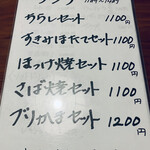 ランチ
からしセット 1100円
すきみほたてセット 1100円
ほっけ焼セット 1100円
さば焼セット 1100円
ブリかまセット 1200円